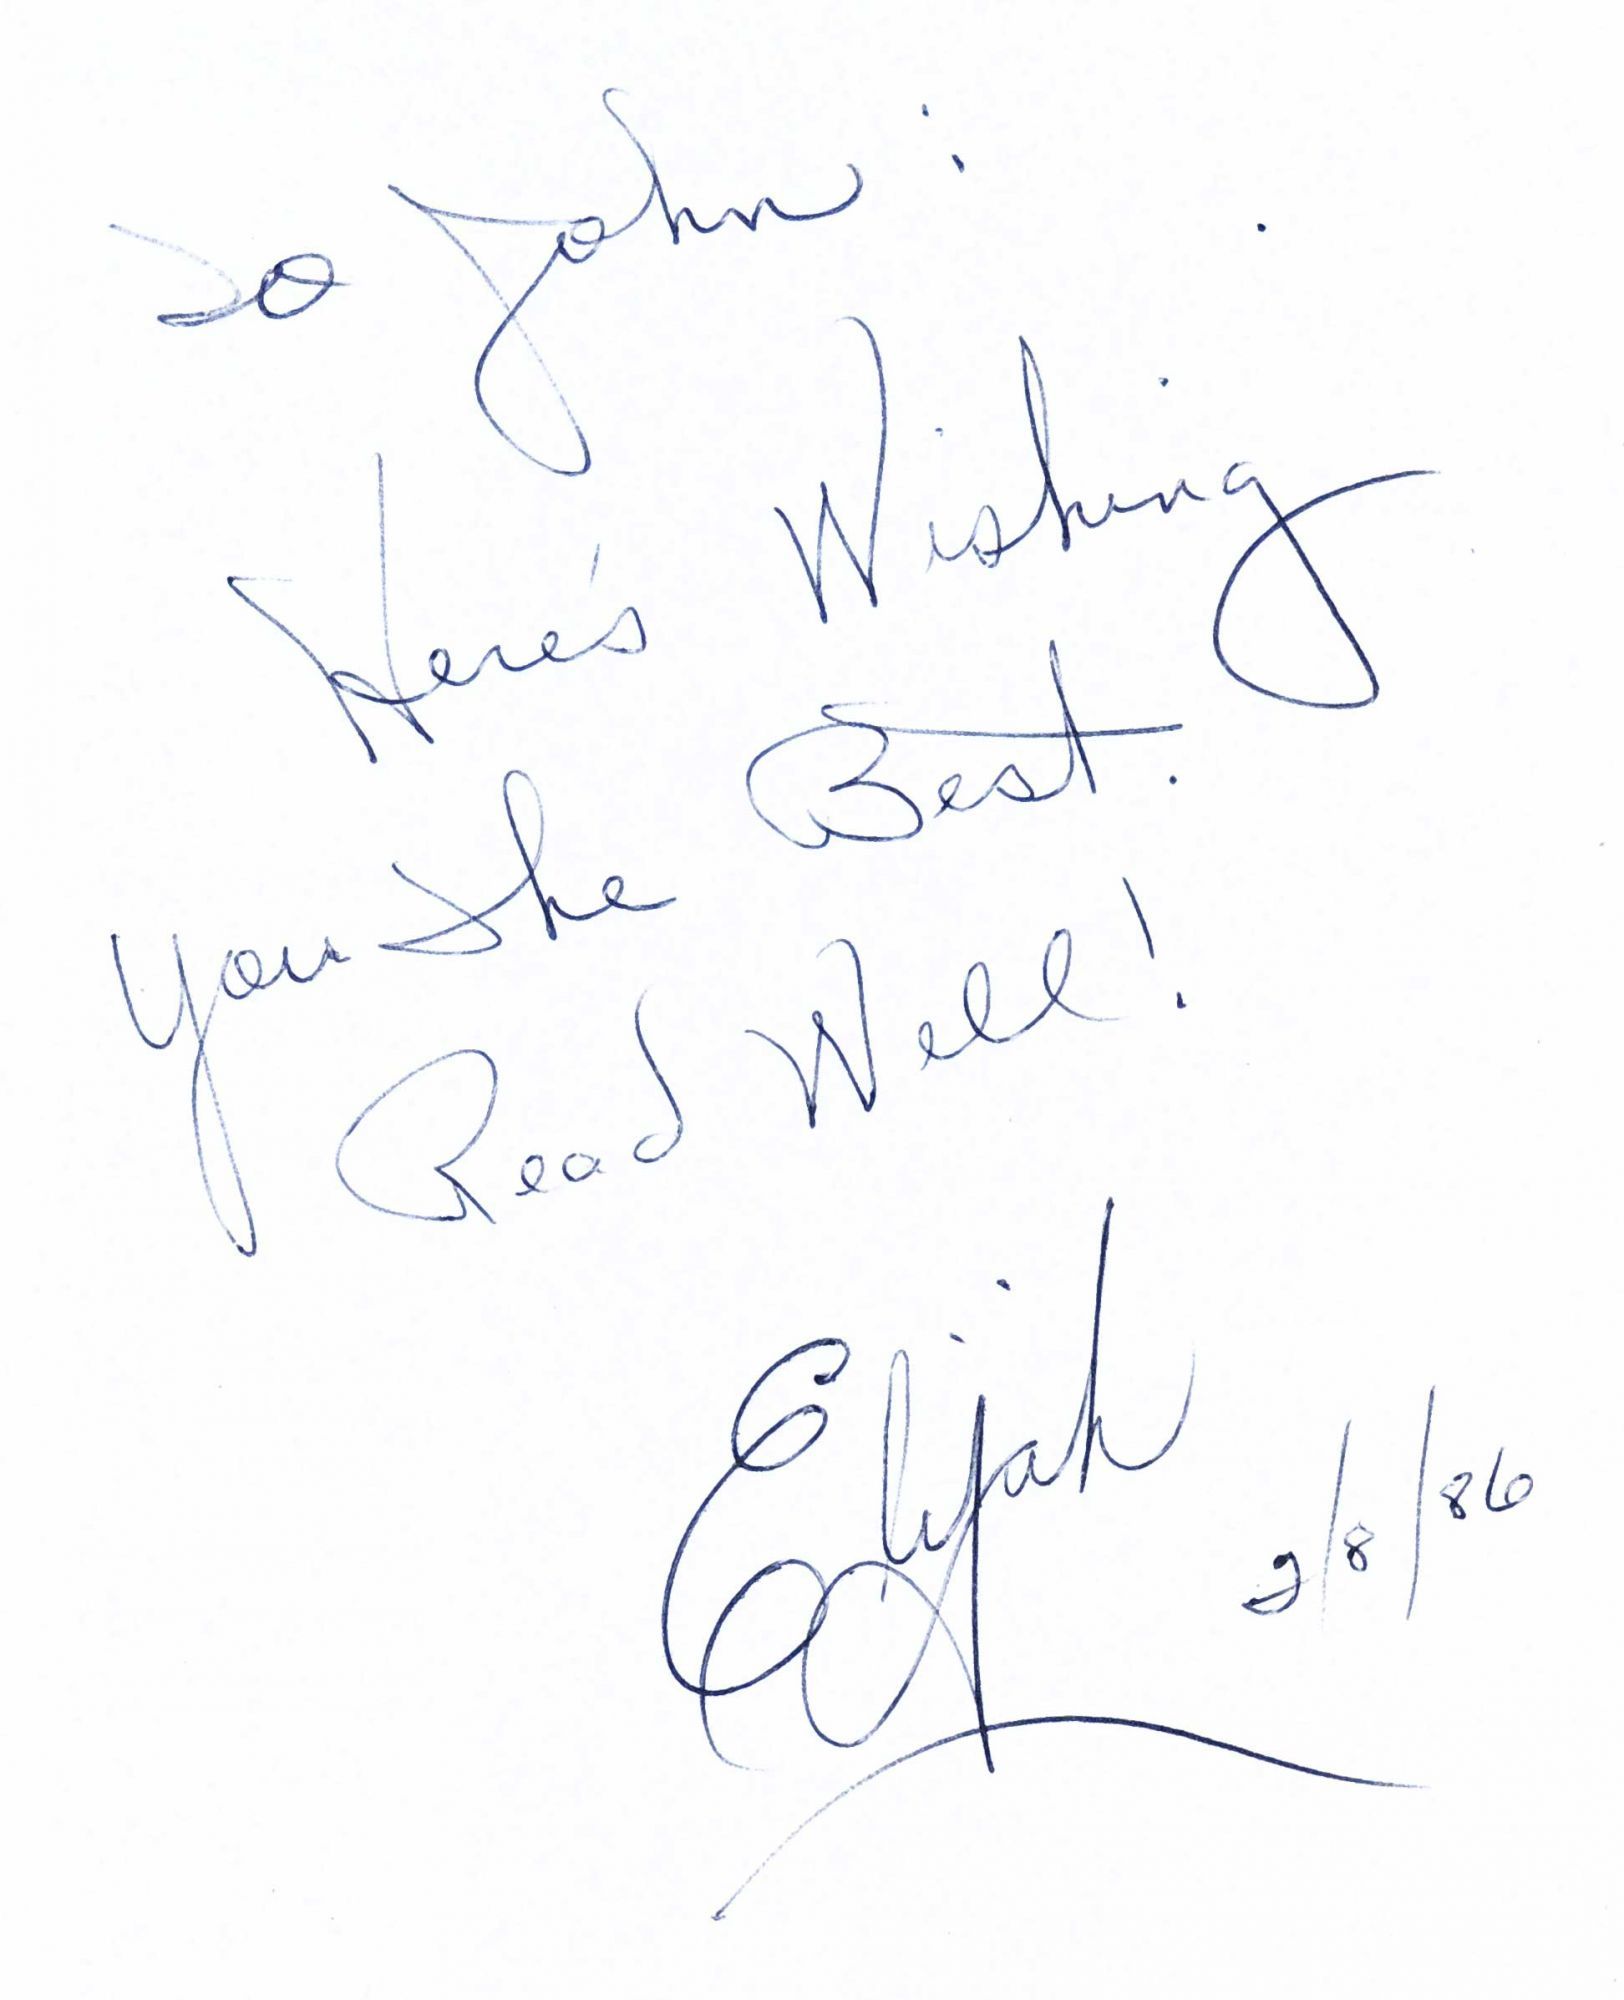 To John:
Here's Wishing
you the Best.
Read Well!
Elijah
2/8/86